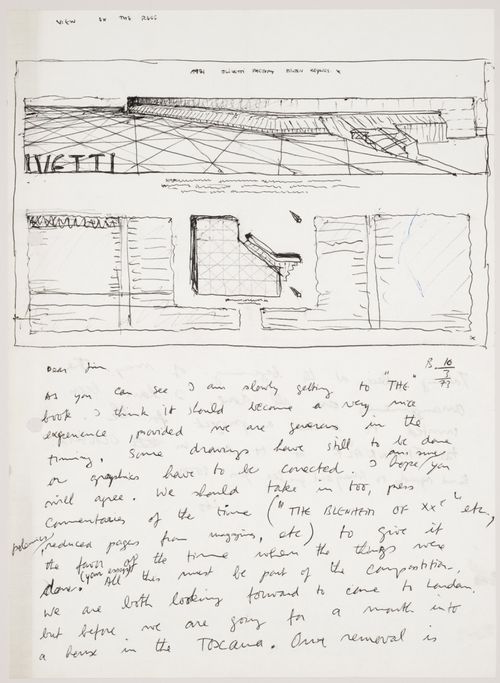 VIEW IN THE
1971 OLIVETTI FACTORY MILTON KEYNES. x
IVETTI
x
Dear Jim
B. 10/7/73
As you can see I am slowly getting to "THE"
book. I think it should become a very nice
experience, provided we are generous in the
timing. Some drawings have still to be done
or graphics have to be corected. I hope/am sure you
will agree. We should take in too, press
commentaries of the time ("THE BLENHEIM OF XXc" etc,
reduced pages from magazins, etc) to give it
the favor of the time when the things were
done. (your essays) All this must be part of the composition.
We are both looking forward to come to London.
but before we are going for a month into
a house in the TOSCANA. Our removal is